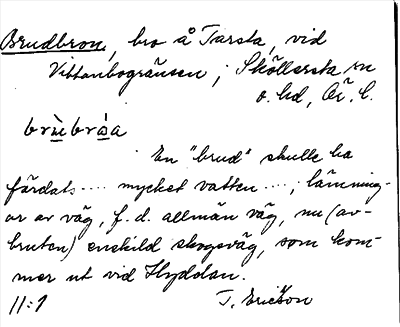 Brudbron, bro å Tarsta, vid
Vittanbogränsen; Sköllersta sn
o. hd, Ör. l.
brùbrò̤a
En "brud" skulle ha
färdats .... mycket vatten ....; lämning-
ar av väg, f. d. allmän väg, nu (av-
bruten) enskild skogsväg, som kom-
mer ut vid Hyddan.
11:1 T. Ericsson